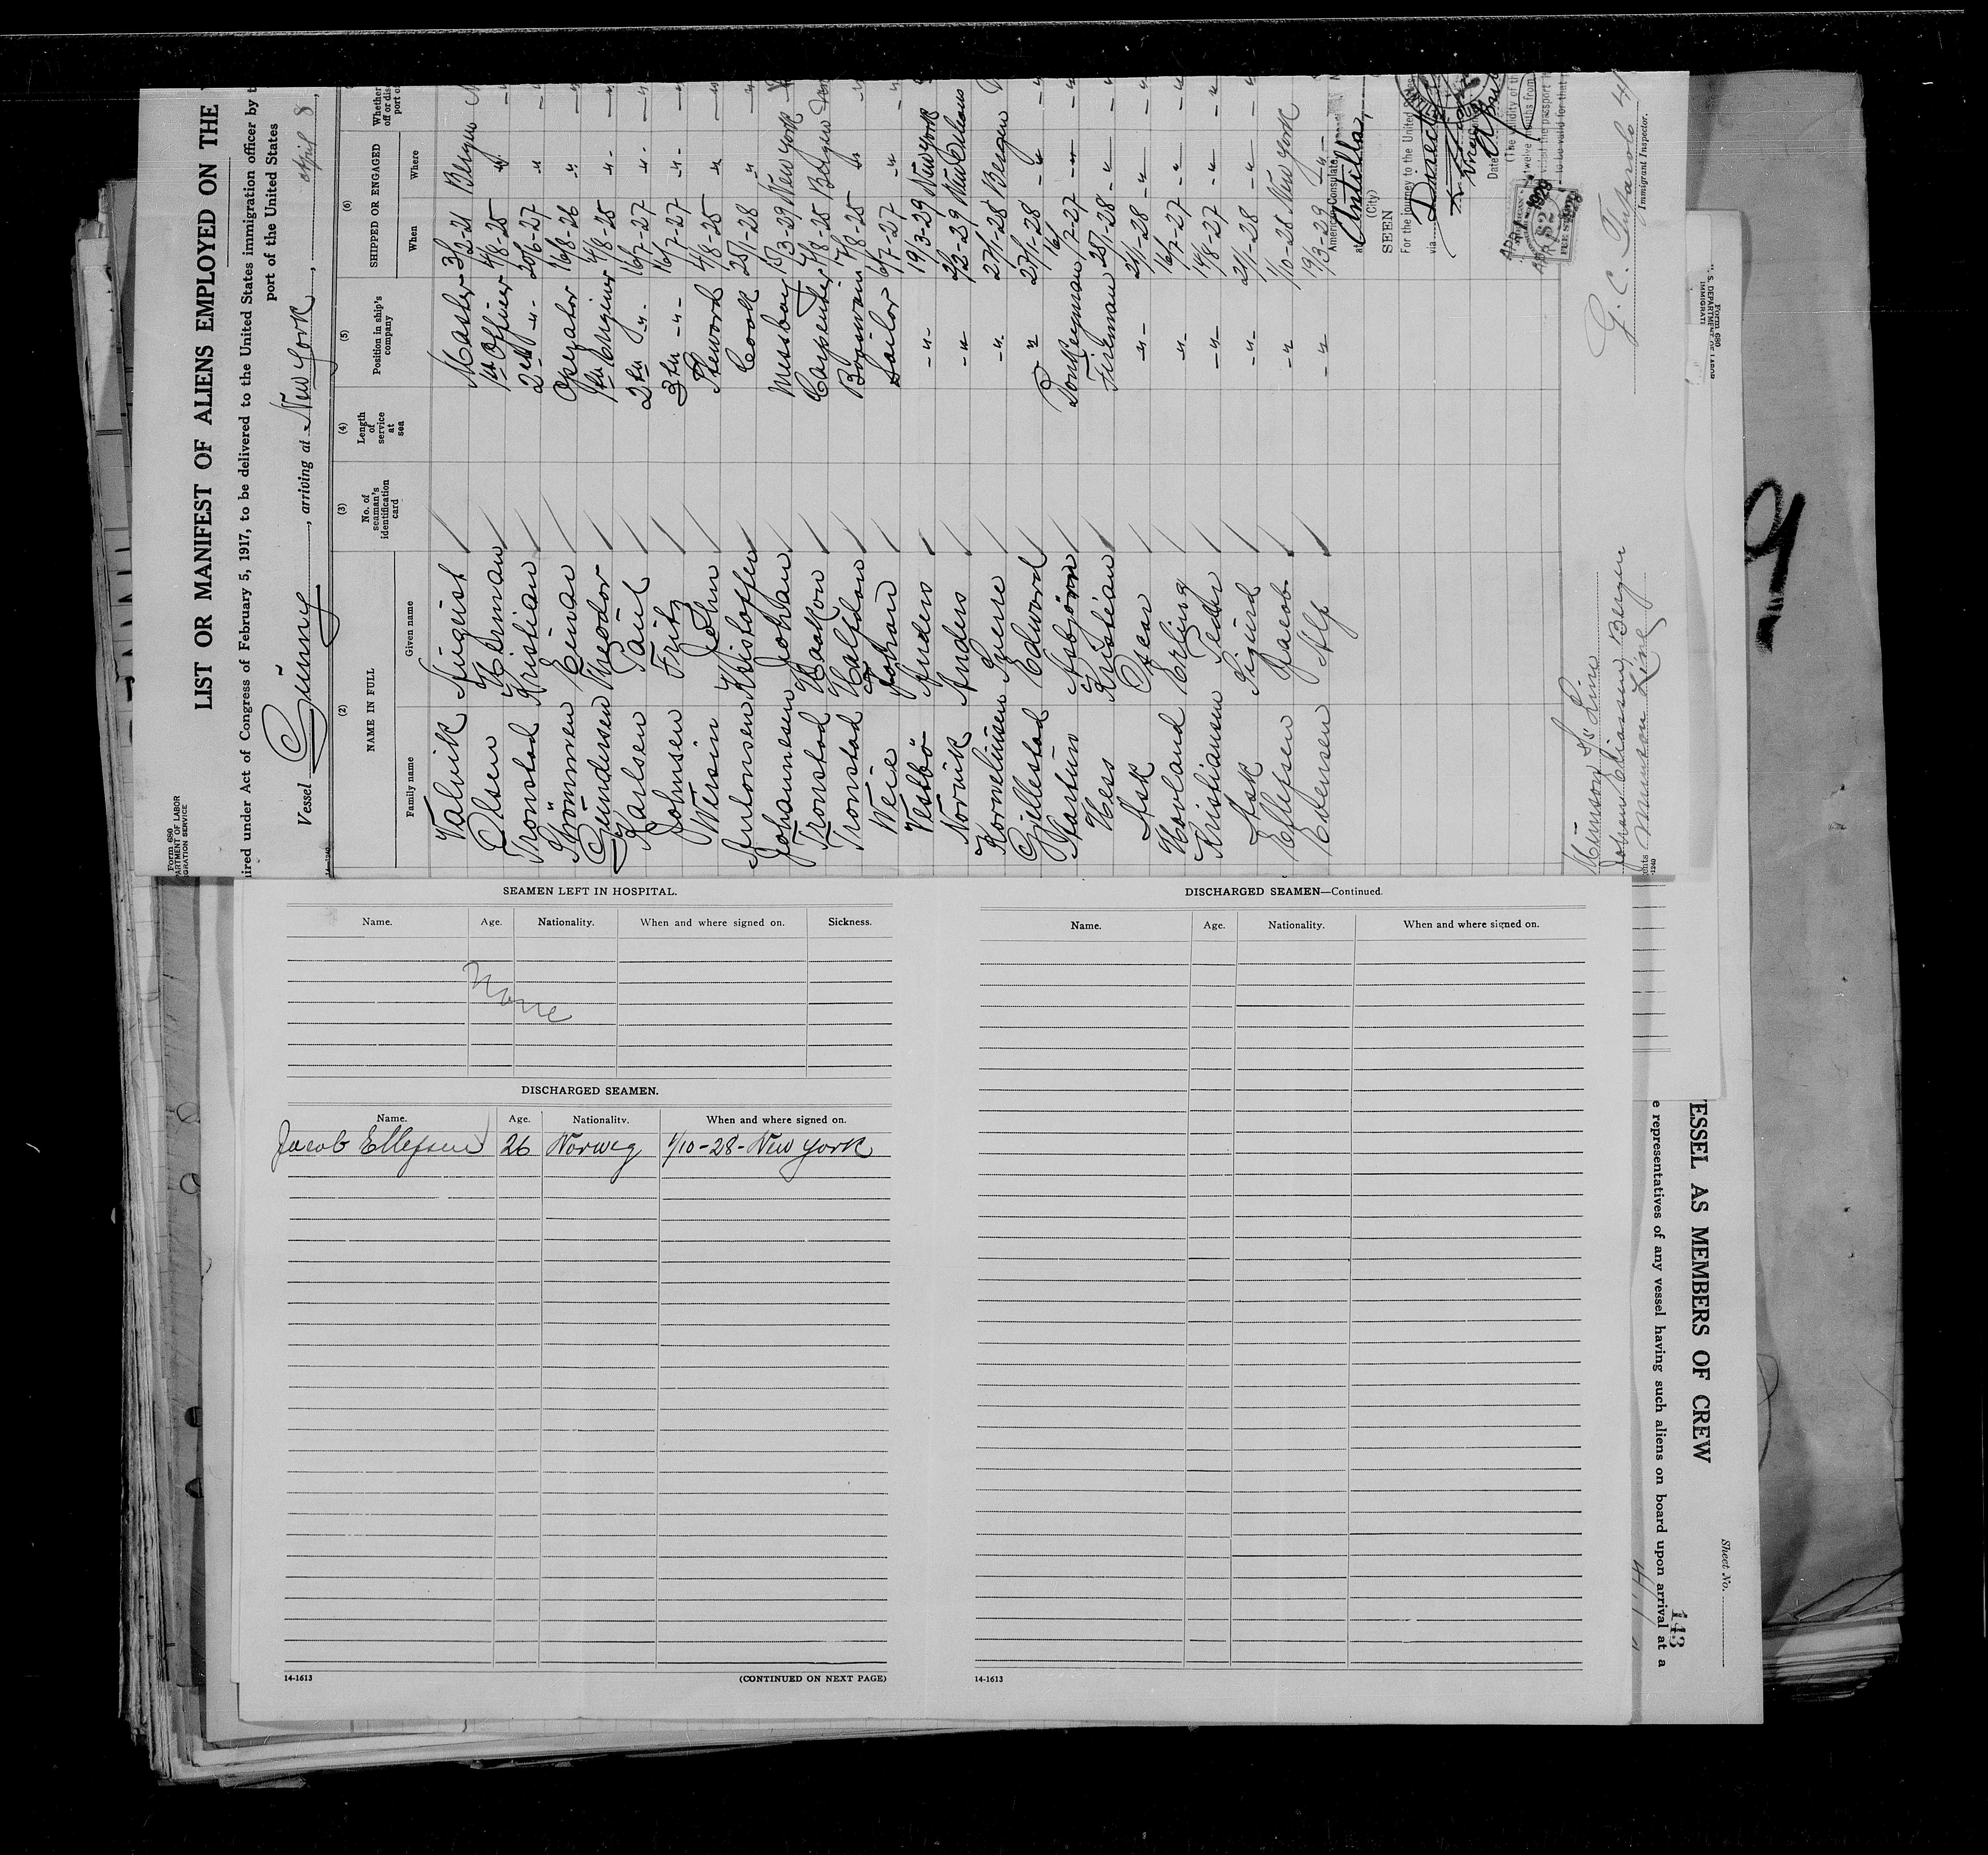 Form 680
LIST OR MANIFEST OF ALIENS EMPLOYED ON THE
ired under Act of Congress of February 5, 1917, to be delivered to the United States immigration officer by t
port of the United States
Vessel Gunny, arriving at New York, April 8,
(2) (3) (4) (5) (6)
NAME IN FULL
Family name Given name
No. of seaman's identification card
Length of service at sea
Position in ship's company
SHIPPED OR ENGAGED
When Where
Valvik August / Master 3/2-21 Bergen
Olsen Herman / 1st Officer 4/8-25 -"-
Tronstad Kristian / 2nd -"- 20/6-27 -"-
Strømmen Einar / Operator 16/8-26 -"-
Gundersen Theodor / 1st Enginer 4/8-25 -"-
Karlsen Paul / 2th -"- 16/7-27 -"-
Johnsen Fritz / 3th -"- 16/7-27 -"-
Wersin John / Steword 4/8-25 -"-
Antonsen Kristoffer / Cook 25/1-28 -"-
Johannesen Johan / Messboy 15/3-29 New York
Tronstad Haakon / Carpenter 4/8-25 Bergen
Tronstad Halfdan / Boatswain 7/8-25 -"-
Weie Johan / Sailor 6/7-27 -"-
Vestbö Anders / -"- 19/3-29 New York
Norvik Anders / -"- 2/2-29 New Orleans
Kornelinsen Sverre / -"- 27/1-28 Bergen
Gjellestad Edward / -"- 27/1-28 -"-
Martun Asbjörn / Donkeyman 16/7-27 -"-
Hess Kristian / Fireman 25/1-28 -"-
Ask Oscar / -"- 21/1-28 -"-
Hovland Erling / -"- 16/7-27 -"-
Kristiansen Peder / -"- 14/8-27 -"-
Ask Sigurd / -"- 21/1-28 -"-
Ellefsen Jacob / -"- 1/10-28 New York
Evensen Alf / -"- 19/3-29 -"-
American Consulate
at Antilla,
(City)
SEEN
For the journey to the United
via Direct
Munson Ss Line
Johan Eliassen Bergen
Munson Line
Immigrant Inspector.
SEAMEN LEFT IN HOSPITAL.
Name. Age. Nationality. When and where signed on. Sickness.
None
DISCHARGED SEAMEN.
Name. Age. Nationality. When and where signed on.
Jacob Ellefsen 26 Norweg 1/10-28-New York
14-1613 (CONTINUED ON NEXT PAGE)
DISCHARGED SEAMEN—Continued.
Name. Age. Nationality. When and where signed on.
14-1613
ESSEL AS MEMBERS OF CREW
e representatives of any vessel having such aliens on board upon arrival at a
Sheet No.
143
9